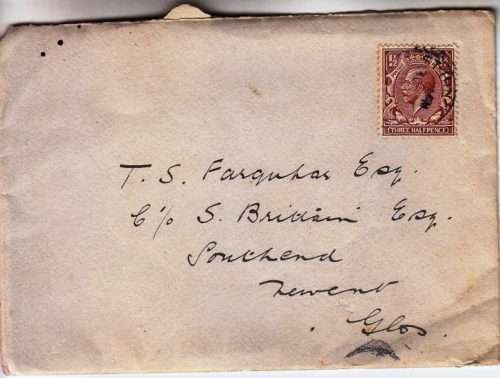 1½
THREE HALFPENCE
T. S. Farquhar Esq.
C/o S. Brittain Esq.
Southend
Newent
Glos.